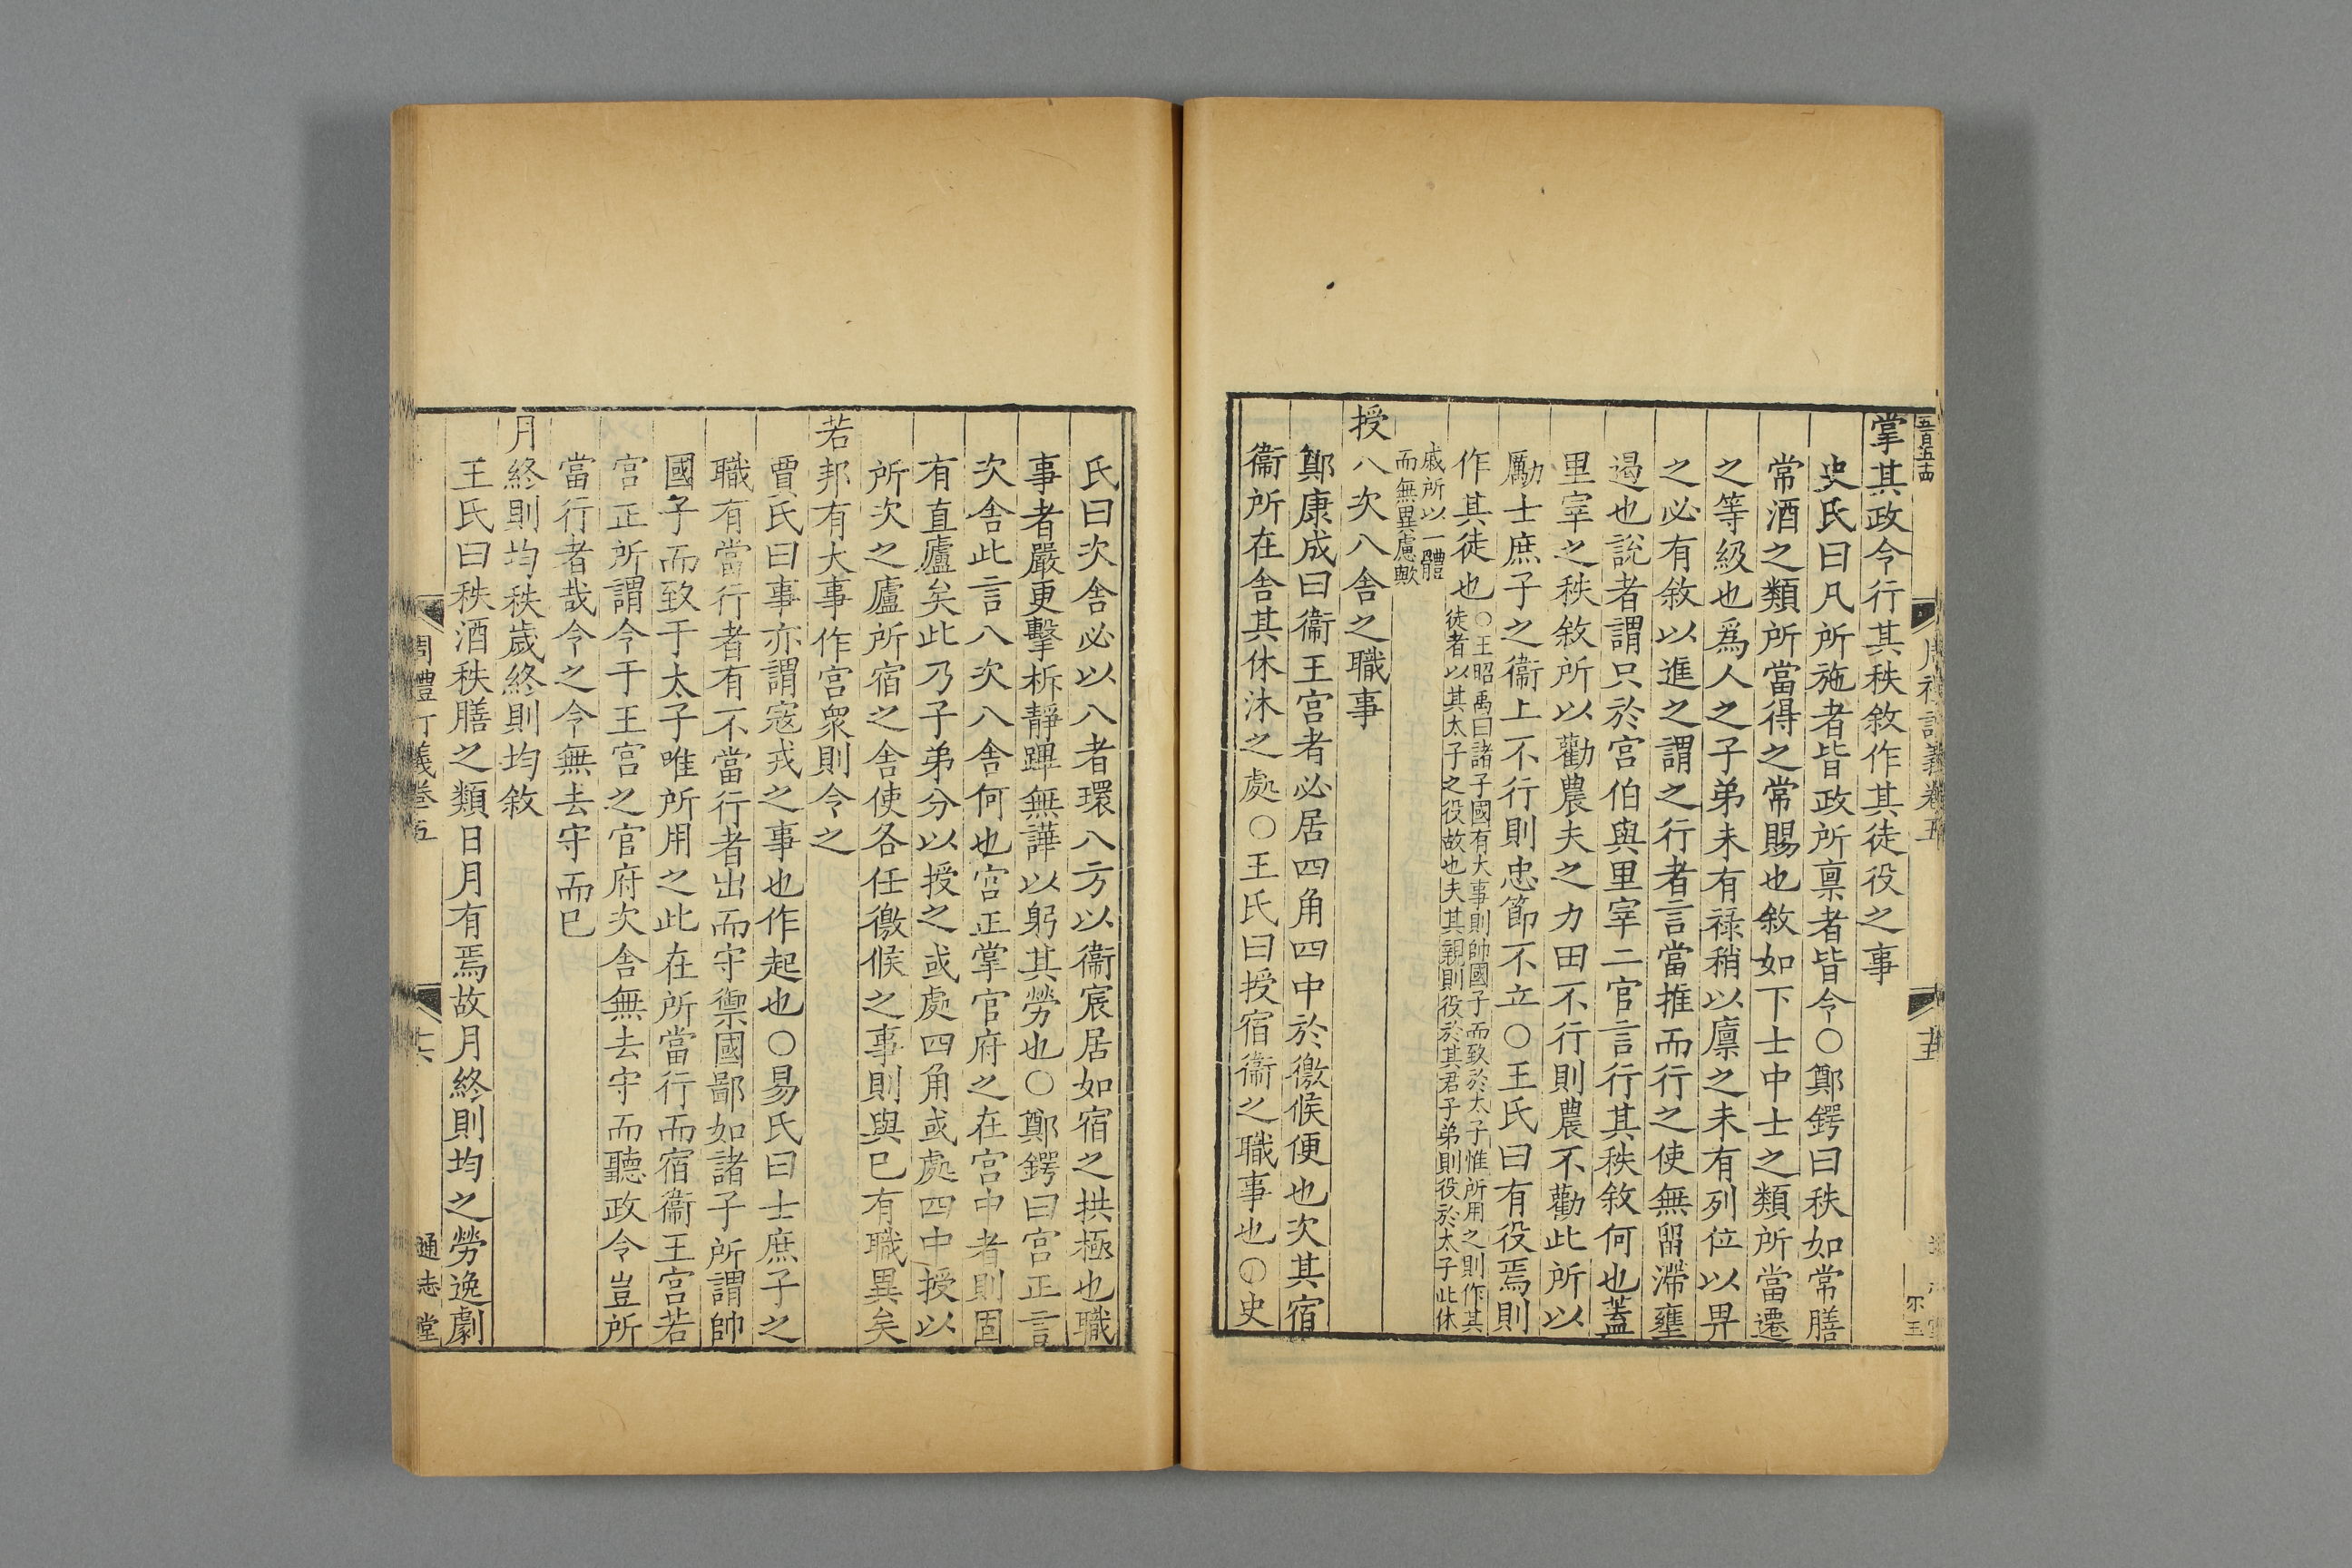 掌其政令行其秩敘作其徒役之事
史氏曰凡所施者皆政所稟者皆令○鄭鍔曰秩如常膳
常酒之類所當得之常賜也敘如下士中士之類所當遷
之等級也爲人之子弟未有祿稍以廪之未有列位以畀
之必有敘以進之謂之行者言當推而行之使無留滯壅
遏也說者謂只於宮伯與里宰二官言行其秩敘何也蓋
里宰之秩敘所以勸農夫之力田不行則農不勸此所以
勵士庶子之衞上不行則忠節不立○王氏曰有役焉則
作其徒也○王昭禹曰諸子國有大事則帥國子而致於太子惟所用之則作其
徒者以其太子之役故也夫其親則役於其君子弟則役於太子此休
戚所以一體
而無異慮歟
授八次八舍之職事
鄭康成曰衞王宮者必居四角四中於徼候便也次其宿
衞所在舍其休沐之處○王氏曰授宿衞之職事也○史
氏曰次舍必以八者環八方以衞宸居如宿之拱極也職
事者嚴更擊柝靜蹕無譁以躬其勞也○鄭鍔曰宮正言
次舍此言八次八舍何也宮正掌官府之在宮中者則固
有直廬矣此乃子弟分以授之或處四角或處四中授以
所次之廬所宿之舍使各任徼候之事則與已有職異矣
若邦有大事作宮衆則令之
賈氏曰事亦謂寇戎之事也作起也○易氏曰士庶子之
職有當行者有不當行者出而守禦國鄙如諸子所謂帥
國子而致于太子唯所用之此在所當行而宿衞王宮若
宮正所謂令于王宮之官府次舍無去守而聽政令豈所
當行者哉令之令無去守而已
月終則均秩歲終則均敘
王氏曰秩酒秩膳之類日月有焉故月終則均之勞逸劇
周禮訂義卷五
通志堂